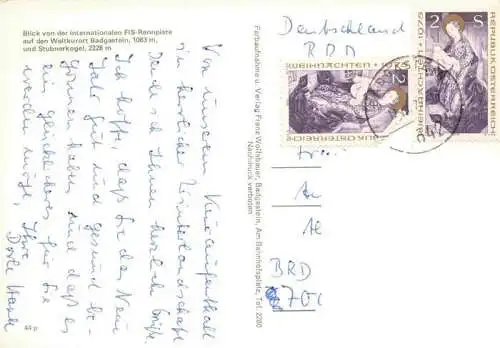 Blick von der internationalen FIS-Rennpiste
auf den Weltkurort Badgastein, 1083 m,
und Stubnerkogel, 2228 m
Von unserem Kuraufenthalt
in herrlicher Winterlandschaft
Ihnen herzlich Grüße.
Ich hoffe, dass Sie das Neue
Jahr gut und gesund be-
gonnen haben und dass es
ein glückliches für Sie
werden möge, Ihre
44 p
Farbaufnahme u. Verlag Franz Wolfsbauer, Badgastein, Am Bahnhofsplatz, Tel. 2280
Nachdruck verboten
Deutschland
BRD
2 S
WEIHNACHTEN 1975
REPUBLIK ÖSTERREICH
2 S
WEIHNACHTEN 1975
REPUBLIK ÖSTERREICH
BRD